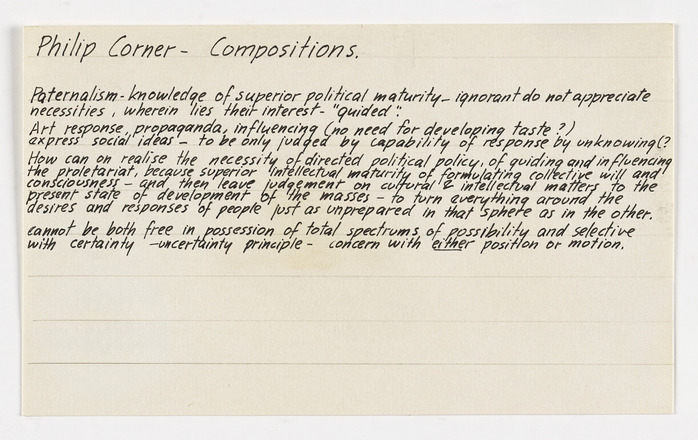 Philip Corner - Compositions.
Paternalism - knowledge of superior political maturity - ignorant do not appreciate
necessities, wherein lies their interest - "guided".
Art response, propaganda, influencing (no need for developing taste?)
express social ideas - to be only judged by capability of response by unknowing(?
How can on realise the necessity of directed political policy, of guiding and influencing
the proletariat, because superior intellectual maturity of formulating collective will and
consciousness - and then leave judgement on cultural & intellectual matters to the
present state of development of the masses - to turn everything around the
desires and responses of people just as unprepared in that sphere as in the other.
cannot be both free in possession of total spectrums of possibility and selective
with certainty - uncertainty principle - concern with either position or motion.